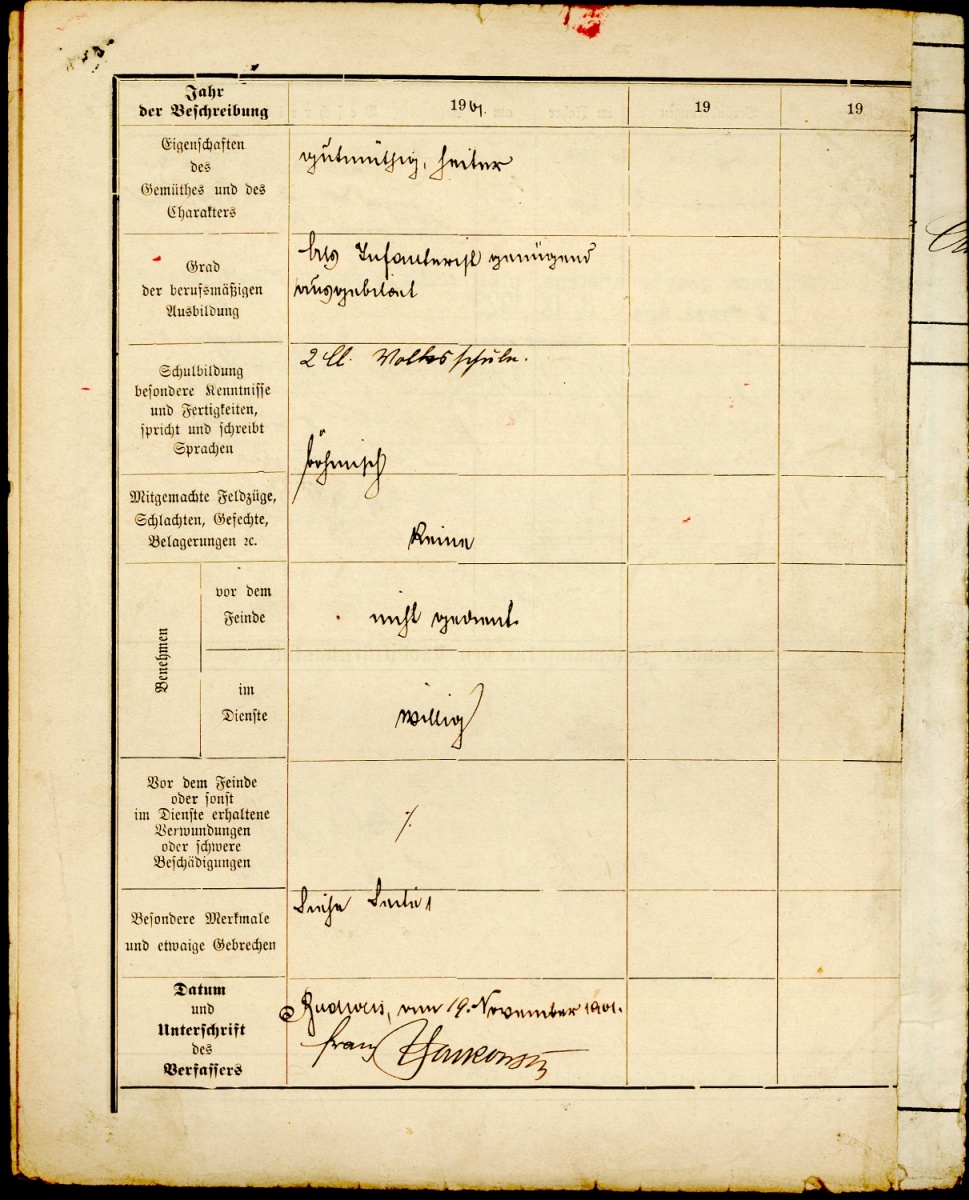 Jahr
der Beschreibung
1901.
19
19
Eigenschaften
des
Gemüthes und des
Charakters
gutmüthig, heiter
Grad
der berufsmäßigen
Ausbildung
Als Infanterist genügend
ausgebildet
Schulbildung
besondere Kenntnisse
und Fertigkeiten,
spricht und schreibt
Sprachen
2 Cl. Volksschule.
böhmisch
Mitgemachte Feldzüge,
Schlachten, Gefechte,
Belagerungen ꝛc.
Keine
Benehmen
vor dem
Feinde
nicht gedient.
im
Dienste
willig
Vor dem Feinde
oder sonst
im Dienste erhaltene
Verwundungen
oder schwere
Beschädigungen
./.
Besondere Merkmale
und etwaige Gebrechen
Siehe Seite 1
Datum
und
Unterschrift
des
Verfassers
Budweis, am 19. November 1901.
Franz